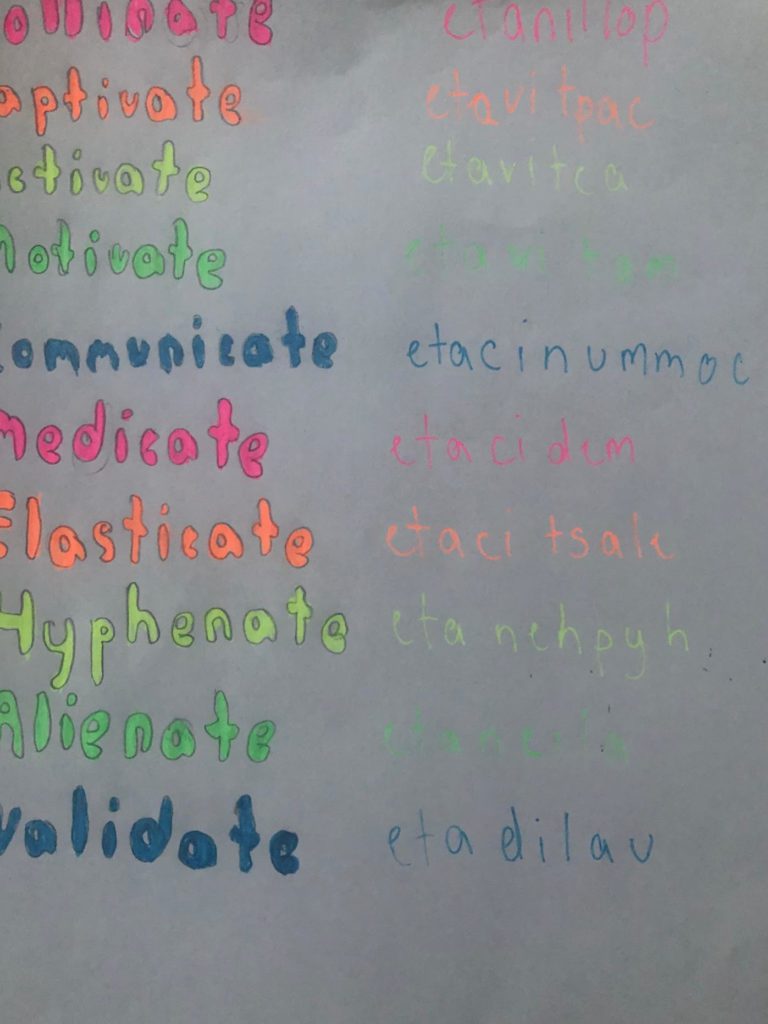 ollinate etanillop
aptivate etavitpac
ctivate etavitca
Motivate etavitom
Communicate etacinummoc
Medicate etacidem
Elasticate etacitsale
Hyphenate etanehpyh
Alienate
Validate etadilav